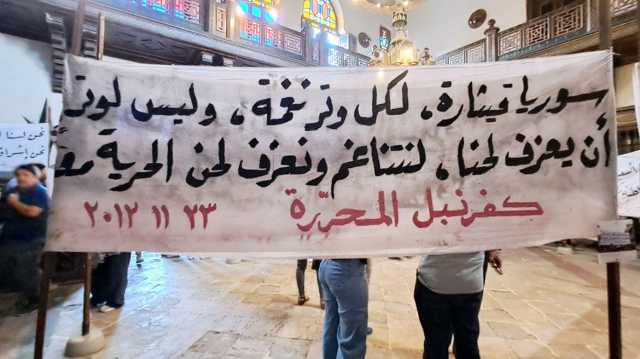 سوريا قيثارة، لكل وتر نغمة، وليس لوتر
أن يعزف لحنا، لنتناغم ونعزف لحن الحرية معاً
كفرنبل المحررة ٢٣ ١١ ٢٠١٢
نحن لسنا